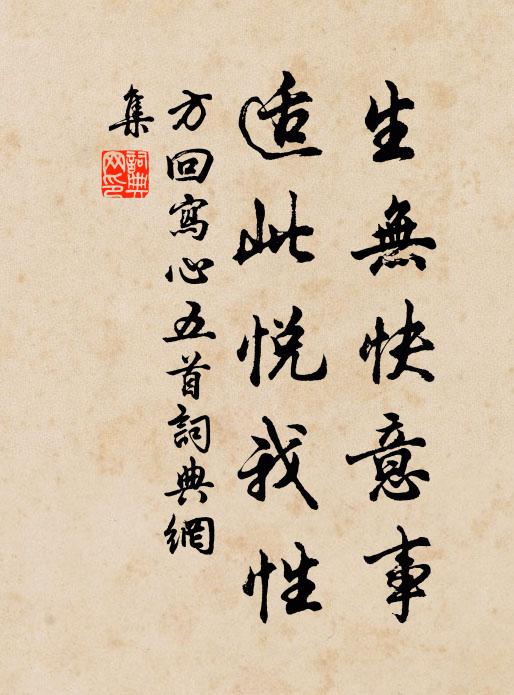 生無快意事
适此悦我性
方回寫心五首詞典網
集
詞典
网印